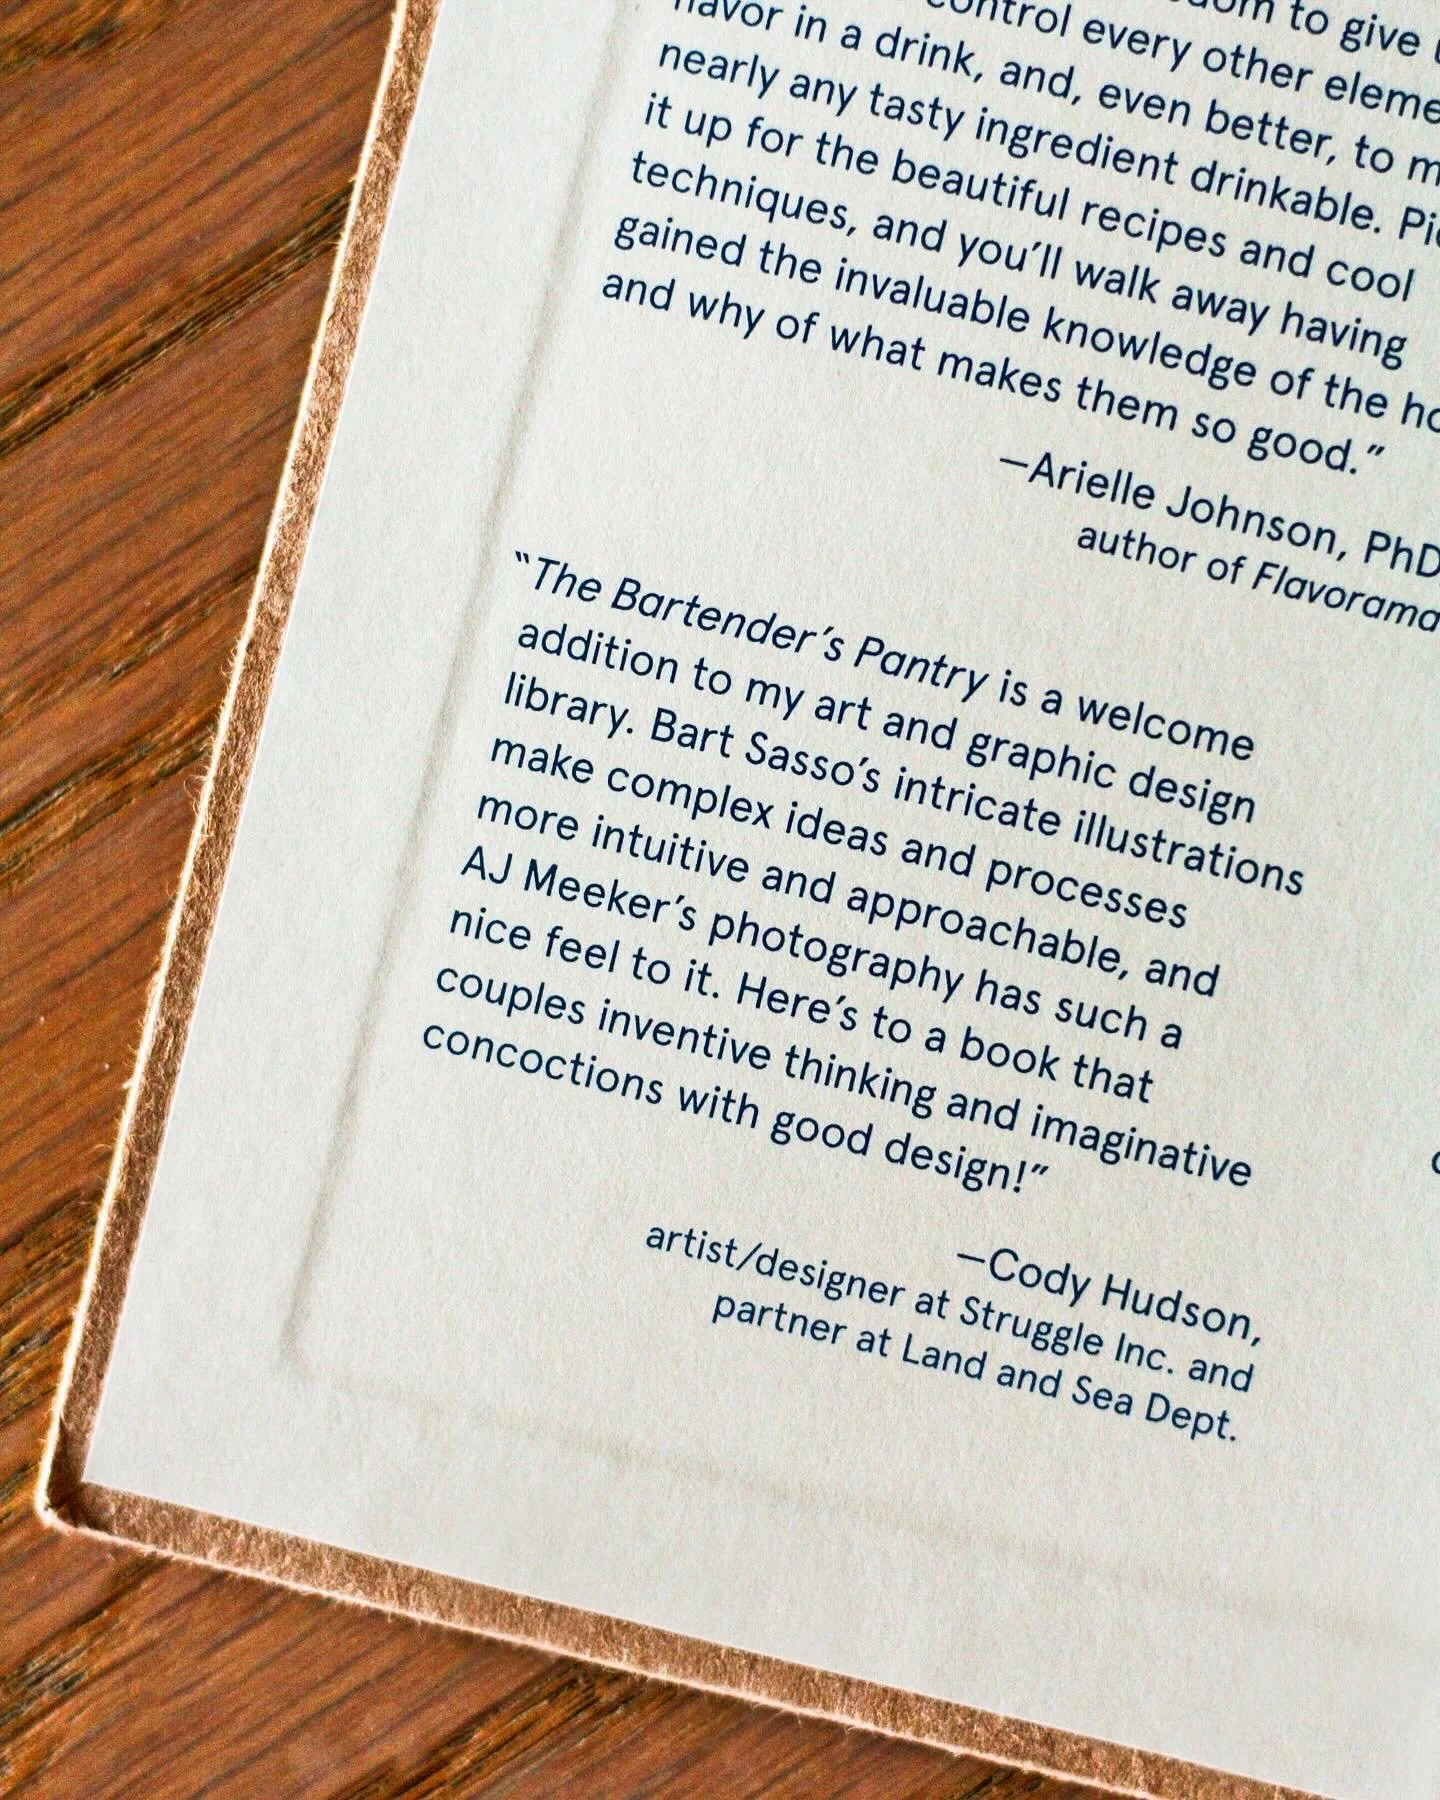 to give
control every other
flavor in a drink, and, even better, to
nearly any tasty ingredient drinkable.
it up for the beautiful recipes and cool
techniques, and you'll walk away having
gained the invaluable knowledge of the
and why of what makes them so good.”
—Arielle Johnson, PhD
author of Flavorama
“The Bartender's Pantry is a welcome
addition to my art and graphic design
library. Bart Sasso's intricate illustrations
make complex ideas and processes
more intuitive and approachable, and
AJ Meeker's photography has such a
nice feel to it. Here's to a book that
couples inventive thinking and imaginative
concoctions with good design!”
—Cody Hudson,
artist/designer at Struggle Inc. and
partner at Land and Sea Dept.